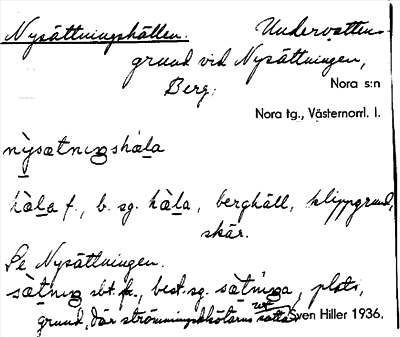 Nysättningshällen. Undervattens-
grund vid Nysättningen,
Berg: Nora s:n
Nora tg., Västernorrl. l.
nỳsætnıŋshàla
hàla f., b. sg. hàla, berghäll, klippgrund,
skär.
Se Nysättningen.
sætnıŋ sbt. f., best. sg. sætnıŋa, plats,
grund, där strömmingsskötarna sättas ut
Sven Hiller 1936.